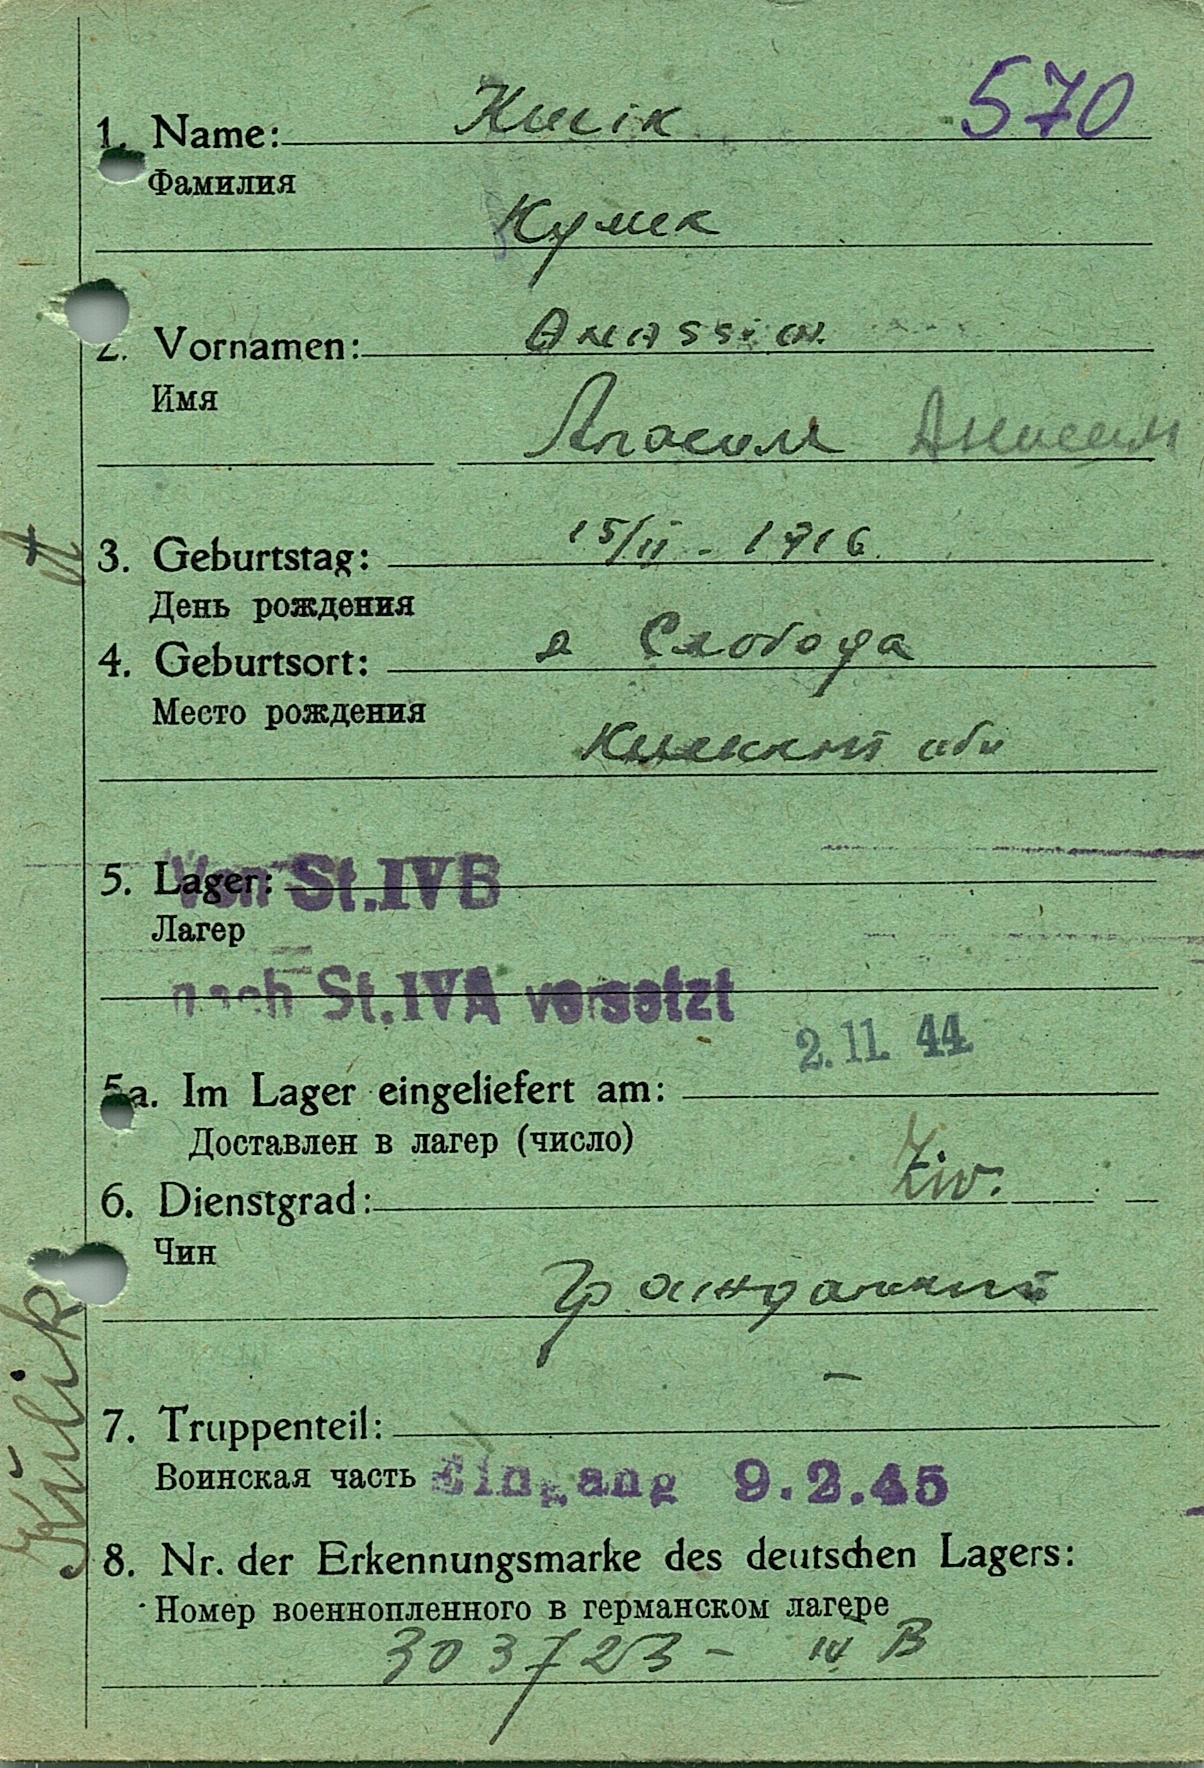 570
1. Name:
Фамилия
2. Vornamen:
Имя
Анисим
3. Geburtstag: 15/II - 1916
День рождения
4. Geburtsort: д Слобода
Место рождения
5. Lager: Von St.IVB
Лагер
nach St.IVA versetzt
2.11.44
5a. Im Lager eingeliefert am:
Доставлен в лагер (число)
6. Dienstgrad: Ziv.
Чин
7. Truppenteil: —
Воинская часть Eingang 9.2.45
8. Nr. der Erkennungsmarke des deutschen Lagers:
Номер военнопленного в германском лагере
303723 - IV B
Kulik